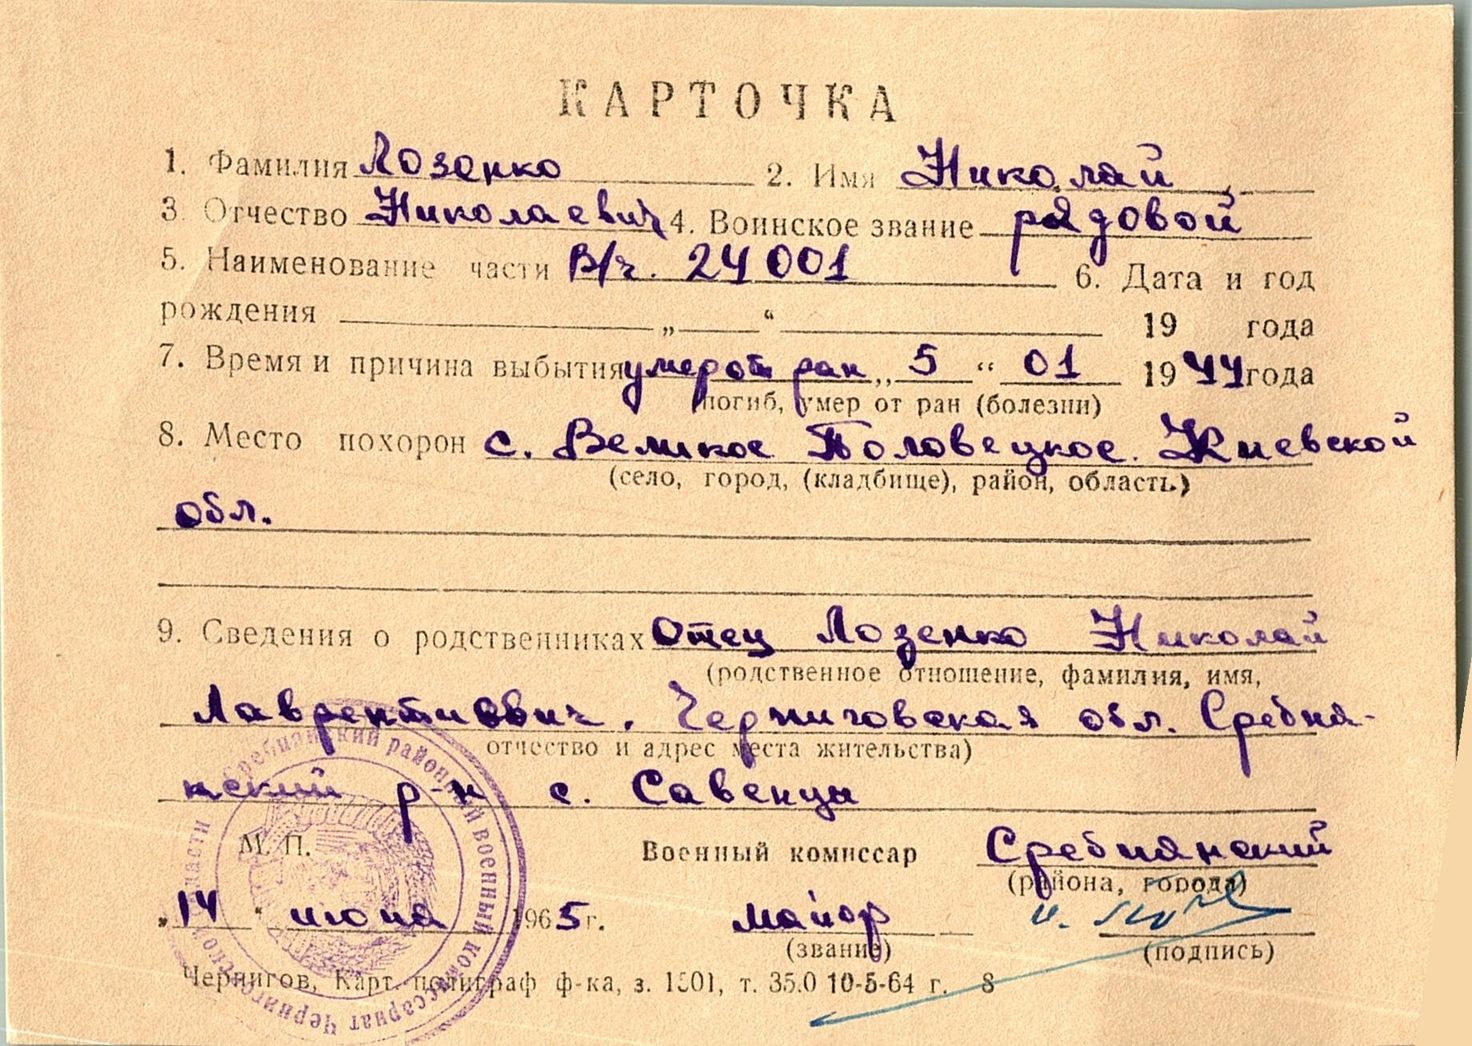 КАРТОЧКА
1. Фамилия Лозенко 2. Имя Николай
3. Отчество Николаевич 4. Воинское звание рядовой
5. Наименование части В/ч. 24001 6. Дата и год
рождения „ “ 19 года
7. Время и причина выбытия умер от ран „5“ 01 1944 года
погиб, умер от ран (болезни)
8. Место похорон с. Великое Половецкое Киевской
(село, город, (кладбище), район, область.)
обл.
9. Сведения о родственниках Отец Лозенко Николай
(родственное отношение, фамилия, имя,
Лаврентиевич, Черниговская обл. Сребня-
отчество и адрес места жительства)
нский р-н с. Савенцы
М. П. Военный комиссар Сребнянский
(района, города)
„14“ июня 1965 г. майор
(звание) (подпись)
Чернигов, Карт. полиграф ф-ка, з. 1501, т. 35.0 10-5-64 г. 8
Сребнянский районный военный комиссариат Черниговской области